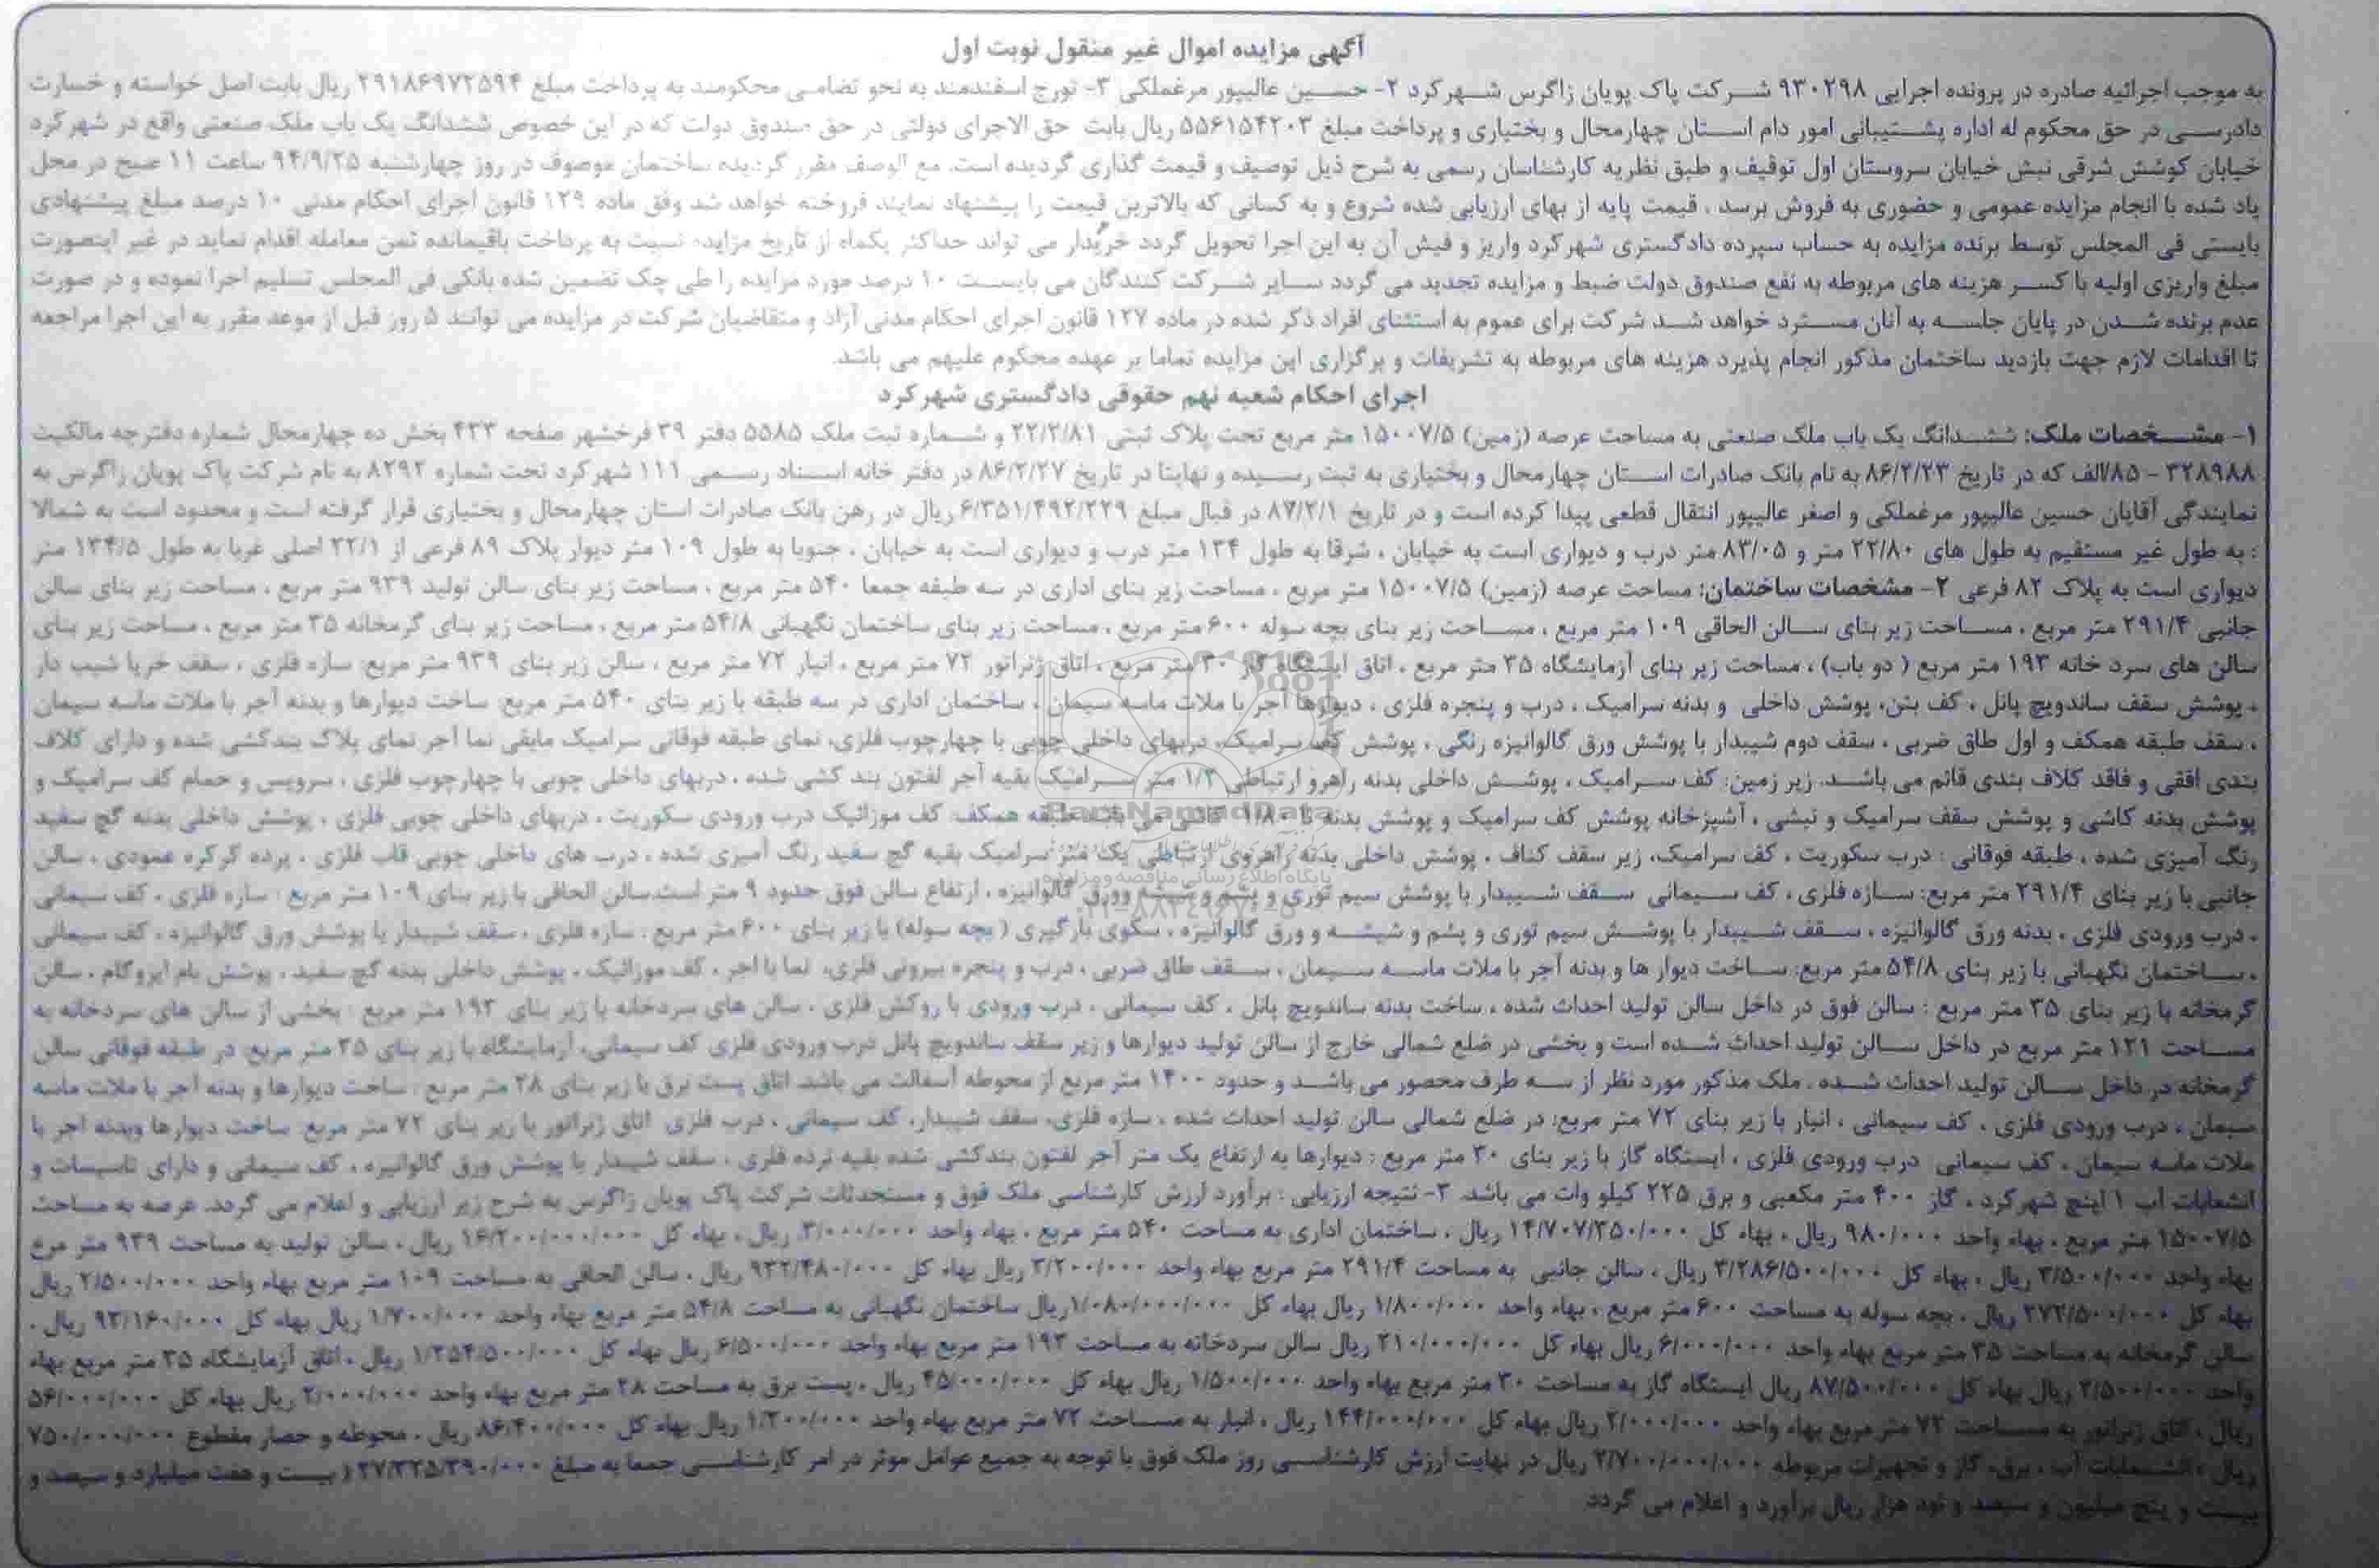 آگهی مزایده اموال غیر منقول نوبت اول
به موجب اجرائیه صادره در پرونده اجرایی ۹۳۰۲۹۸ شرکت پاک پویان زاگرس شهرکرد ۲- حسین عالیپور مرغملکی ۳- تورج اسفندمند به نحو تضامنی محکومند به پرداخت مبلغ ۲۹۱۸۶۹۷۲۵۹۴ ریال بابت اصل خواسته و خسارت
دادرسی در حق محکوم له اداره پشتیبانی امور دام استان چهارمحال و بختیاری و پرداخت مبلغ ۵۵۶۱۵۴۲۰۳ ریال بابت حق الاجرای دولتی در حق صندوق دولت که در این خصوص ششدانگ یک باب ملک صنعتی واقع در شهرکرد
خیابان کوشش شرقی نبش خیابان سروستان اول توقیف و طبق نظریه کارشناسان رسمی به شرح ذیل توصیف و قیمت گذاری گردیده است. مع الوصف مقرر گردیده ساختمان موصوف در روز چهارشنبه ۹۴/۹/۲۵ ساعت ۱۱ صبح در محل
یاد شده با انجام مزایده عمومی و حضوری به فروش برسد . قیمت پایه از بهای ارزیابی شده شروع و به کسانی که بالاترین قیمت را پیشنهاد نمایند فروخته خواهد شد وفق ماده ۱۲۹ قانون اجرای احکام مدنی ۱۰ درصد مبلغ پیشنهادی
بایستی فی المجلس توسط برنده مزایده به حساب سپرده دادگستری شهرکرد واریز و فیش آن به این اجرا تحویل گردد خریدار می تواند حداکثر یکماه از تاریخ مزایده نسبت به پرداخت باقیمانده ثمن معامله اقدام نماید در غیر اینصورت
مبلغ واریزی اولیه با کسر هزینه های مربوطه به نفع صندوق دولت ضبط و مزایده تجدید می گردد سایر شرکت کنندگان می بایست ۱۰ درصد مورد مزایده را طی چک تضمین شده بانکی فی المجلس تسلیم اجرا نموده و در صورت
عدم برنده شدن در پایان جلسه به آنان مسترد خواهد شد شرکت برای عموم به استثنای افراد ذکر شده در ماده ۱۲۷ قانون اجرای احکام مدنی آزاد و متقاضیان شرکت در مزایده می توانند ۵ روز قبل از موعد مقرر به این اجرا مراجعه
تا اقدامات لازم جهت بازدید ساختمان مذکور انجام پذیرد هزینه های مربوطه به تشریفات و برگزاری این مزایده تماما بر عهده محکوم علیهم می باشد.
اجرای احکام شعبه نهم حقوقی دادگستری شهرکرد
۱- مشخصات ملک: ششدانگ یک باب ملک صنعتی به مساحت عرصه (زمین) ۱۵۰۰۷/۵ متر مربع تحت پلاک ثبتی ۲۲/۲/۸۱ و شماره ثبت ملک ۵۵۸۵ دفتر ۳۹ فرخشهر صفحه ۴۲۳ بخش ده چهارمحال شماره دفترچه مالکیت
۳۲۸۹۸۸ - ۸۵/الف که در تاریخ ۸۶/۲/۲۳ به نام بانک صادرات استان چهارمحال و بختیاری به ثبت رسیده و نهایتا در تاریخ ۸۶/۲/۲۷ در دفتر خانه اسناد رسمی ۱۱۱ شهرکرد تحت شماره ۸۲۹۲ به نام شرکت پاک پویان زاگرس به
نمایندگی آقایان حسین عالیپور مرغملکی و اصغر عالیپور انتقال قطعی پیدا کرده است و در تاریخ ۸۷/۲/۱ در قبال مبلغ ۶/۳۵۱/۴۹۲/۲۲۹ ریال در رهن بانک صادرات استان چهارمحال و بختیاری قرار گرفته است و محدود است به شمالا
: به طول غیر مستقیم به طول های ۲۲/۸۰ متر و ۸۳/۰۵ متر درب و دیواری است به خیابان ، شرقا به طول ۱۳۴ متر درب و دیواری است به خیابان ، جنوبا به طول ۱۰۹ متر دیوار پلاک ۸۹ فرعی از ۲۲/۱ اصلی غربا به طول ۱۳۴/۵ متر
دیواری است به پلاک ۸۲ فرعی ۲- مشخصات ساختمان: مساحت عرصه (زمین) ۱۵۰۰۷/۵ متر مربع ، مساحت زیر بنای اداری در سه طبقه جمعا ۵۴۰ متر مربع ، مساحت زیر بنای سالن تولید ۹۳۹ متر مربع ، مساحت زیر بنای سالن
جانبی ۲۹۱/۴ متر مربع ، مساحت زیر بنای سالن الحاقی ۱۰۹ متر مربع ، مساحت زیر بنای بچه سوله ۶۰۰ متر مربع ، مساحت زیر بنای ساختمان نگهبانی ۵۴/۸ متر مربع ، مساحت زیر بنای گرمخانه ۳۵ متر مربع ، مساحت زیر بنای
سالن های سرد خانه ۱۹۳ متر مربع ( دو باب) ، مساحت زیر بنای آزمایشگاه ۳۵ متر مربع ، اتاق ایستگاه گاز ۳۰ متر مربع ، اتاق ژنراتور ۷۲ متر مربع ، انبار ۷۲ متر مربع ، سالن زیر بنای ۹۳۹ متر مربع: سازه فلزی ، سقف خرپا شیب دار
، پوشش سقف ساندویچ پانل ، کف بتن، پوشش داخلی و بدنه سرامیک ، درب و پنجره فلزی ، دیوارها آجر با ملات ماسه سیمان ، ساختمان اداری در سه طبقه با زیر بنای ۵۴۰ متر مربع: ساخت دیوارها و بدنه آجر با ملات ماسه سیمان
، سقف طبقه همکف و اول طاق ضربی ، سقف دوم شیبدار با پوشش ورق گالوانیزه رنگی ، پوشش کف سرامیک، دربهای داخلی چوبی با چهارچوب فلزی، نمای طبقه فوقانی سرامیک مابقی نما آجر نمای پلاک بندکشی شده و دارای کلاف
بندی افقی و فاقد کلاف بندی قائم می باشد. زیر زمین: کف سرامیک ، پوشش داخلی بدنه راهرو ارتباطی ۱/۲ متر سرامیک بقیه آجر لفتون بند کشی شده ، دربهای داخلی چوبی با چهارچوب فلزی ، سرویس و حمام کف سرامیک و
پوشش بدنه کاشی و پوشش سقف سرامیک و نبشی ، آشپزخانه پوشش کف سرامیک و پوشش بدنه تا ۱/۸۰ کاشی می باشد. طبقه همکف: کف موزائیک درب ورودی سکوریت ، دربهای داخلی چوبی فلزی ، پوشش داخلی بدنه گچ سفید
رنگ آمیزی شده ، طبقه فوقانی : درب سکوریت ، کف سرامیک، زیر سقف کناف ، پوشش داخلی بدنه راهروی ارتباطی یک متر سرامیک بقیه گچ سفید رنگ آمیزی شده ، درب های داخلی چوبی قاب فلزی ، پرده کرکره عمودی ، سالن
جانبی با زیر بنای ۲۹۱/۴ متر مربع: سازه فلزی ، کف سیمانی سقف شیبدار با پوشش سیم توری و پشم و شیشه وورق گالوانیزه ، ارتفاع سالن فوق حدود ۹ متر است.سالن الحاقی با زیر بنای ۱۰۹ متر مربع : سازه فلزی ، کف سیمانی
، درب ورودی فلزی ، بدنه ورق گالوانیزه ، سقف شیبدار با پوشش سیم توری و پشم و شیشه و ورق گالوانیزه ، سکوی بارگیری ( بچه سوله) با زیر بنای ۶۰۰ متر مربع : سازه فلزی ، سقف شیبدار با پوشش ورق گالوانیزه ، کف سیمانی
، ساختمان نگهبانی با زیر بنای ۵۴/۸ متر مربع: ساخت دیوار ها و بدنه آجر با ملات ماسه سیمان ، سقف طاق ضربی ، درب و پنجره بیرونی فلزی، نما با اجر ، کف موزائیک ، پوشش داخلی بدنه گچ سفید ، پوشش بام ایزوگام ، سالن
گرمخانه با زیر بنای ۳۵ متر مربع : سالن فوق در داخل سالن تولید احداث شده ، ساخت بدنه ساندویچ پانل ، کف سیمانی ، درب ورودی با روکش فلزی ، سالن های سردخانه با زیر بنای ۱۹۳ متر مربع : بخشی از سالن های سردخانه به
مساحت ۱۲۱ متر مربع در داخل سالن تولید احداث شده است و بخشی در ضلع شمالی خارج از سالن تولید دیوارها و زیر سقف ساندویچ پانل درب ورودی فلزی کف سیمانی، آزمایشگاه با زیر بنای ۳۵ متر مربع: در طبقه فوقانی سالن
گرمخانه در داخل سالن تولید احداث شده ، ملک مذکور مورد نظر از سه طرف محصور می باشد و حدود ۱۴۰۰ متر مربع از محوطه آسفالت می باشد. اتاق پست برق با زیر بنای ۲۸ متر مربع : ساخت دیوارها و بدنه آجر با ملات ماسه
سیمان ، درب ورودی فلزی ، کف سیمانی ، انبار با زیر بنای ۷۲ متر مربع: در ضلع شمالی سالن تولید احداث شده ، سازه فلزی، سقف شیبدار، کف سیمانی ، درب فلزی اتاق ژنراتور با زیر بنای ۷۲ متر مربع: ساخت دیوارها وبدنه اجر با
ملات ماسه سیمان ، کف سیمانی درب ورودی فلزی ، ایستگاه گاز با زیر بنای ۳۰ متر مربع : دیوارها به ارتفاع یک متر آجر لفتون بندکشی شده بقیه نرده فلزی ، سقف شیبدار با پوشش ورق گالوانیزه ، کف سیمانی و دارای تاسیسات و
انشعابات آب ۱ اینچ شهرکرد ، گاز ۴۰۰ متر مکعبی و برق ۲۲۵ کیلو وات می باشد. ۳- نتیجه ارزیابی : برآورد ارزش کارشناسی ملک فوق و مستحدثات شرکت پاک پویان زاگرس به شرح زیر ارزیابی و اعلام می گردد. عرصه به مساحت
۱۵۰۰۷/۵ متر مربع ، بهاء واحد ۹۸۰/۰۰۰ ریال ، بهاء کل ۱۴/۷۰۷/۳۵۰/۰۰۰ ریال ، ساختمان اداری به مساحت ۵۴۰ متر مربع ، بهاء واحد ۳/۰۰۰/۰۰۰ ریال ، بهاء کل ۱۶/۲۰۰/۰۰۰/۰۰۰ ریال ، سالن تولید به مساحت ۹۳۹ متر مرع
بهاء واحد ۳/۵۰۰/۰۰۰ ریال ، بهاء کل ۳/۲۸۶/۵۰۰/۰۰۰ ریال ، سالن جانبی به مساحت ۲۹۱/۴ متر مربع بهاء واحد ۳/۲۰۰/۰۰۰ ریال بهاء کل ۹۳۲/۴۸۰/۰۰۰ ریال ، سالن الحاقی به مساحت ۱۰۹ متر مربع بهاء واحد ۲/۵۰۰/۰۰۰ ریال
بهاء کل ۲۷۲/۵۰۰/۰۰۰ ریال ، بچه سوله به مساحت ۶۰۰ متر مربع ، بهاء واحد ۱/۸۰۰/۰۰۰ ریال بهاء کل ۱/۰۸۰/۰۰۰/۰۰۰ ریال ساختمان نگهبانی به مساحت ۵۴/۸ متر مربع بهاء واحد ۱/۷۰۰/۰۰۰ ریال بهاء کل ۹۳/۱۶۰/۰۰۰ ریال ،
سالن گرمخانه به مساحت ۳۵ متر مربع بهاء واحد ۶/۰۰۰/۰۰۰ ریال بهاء کل ۲۱۰/۰۰۰/۰۰۰ ریال سالن سردخانه به مساحت ۱۹۳ متر مربع بهاء واحد ۶/۵۰۰/۰۰۰ ریال بهاء کل ۱/۲۵۴/۵۰۰/۰۰۰ ریال ، اتاق آزمایشگاه ۳۵ متر مربع بهاء
واحد ۲/۵۰۰/۰۰۰ ریال بهاء کل ۸۷/۵۰۰/۰۰۰ ریال ایستگاه گاز به مساحت ۳۰ متر مربع بهاء واحد ۱/۵۰۰/۰۰۰ ریال بهاء کل ۴۵/۰۰۰/۰۰۰ ریال ، پست برق به مساحت ۲۸ متر مربع بهاء واحد ۲/۰۰۰/۰۰۰ ریال بهاء کل ۵۶/۰۰۰/۰۰۰
ریال ، اتاق ژنراتور به مساحت ۷۲ متر مربع بهاء واحد ۲/۰۰۰/۰۰۰ ریال بهاء کل ۱۴۴/۰۰۰/۰۰۰ ریال ، انبار به مساحت ۷۲ متر مربع بهاء واحد ۱/۲۰۰/۰۰۰ ریال بهاء کل ۸۶/۴۰۰/۰۰۰ ریال ، محوطه و حصار مقطوع ۷۵۰/۰۰۰/۰۰۰
ریال ، انشعابات آب ، برق، گاز و تجهیزات مربوطه ۲/۷۰۰/۰۰۰/۰۰۰ ریال در نهایت ارزش کارشناسی روز ملک فوق با توجه به جمیع عوامل موثر در امر کارشناسی جمعا به مبلغ ۲۷/۳۲۵/۳۹۰/۰۰۰ ( بیست و هفت میلیارد و سیصد و
بیست و پنج میلیون و سیصد و نود هزار ریال برآورد و اعلام می گردد.
ParsNamadData
پایگاه اطلاع رسانی مناقصه و مزایده